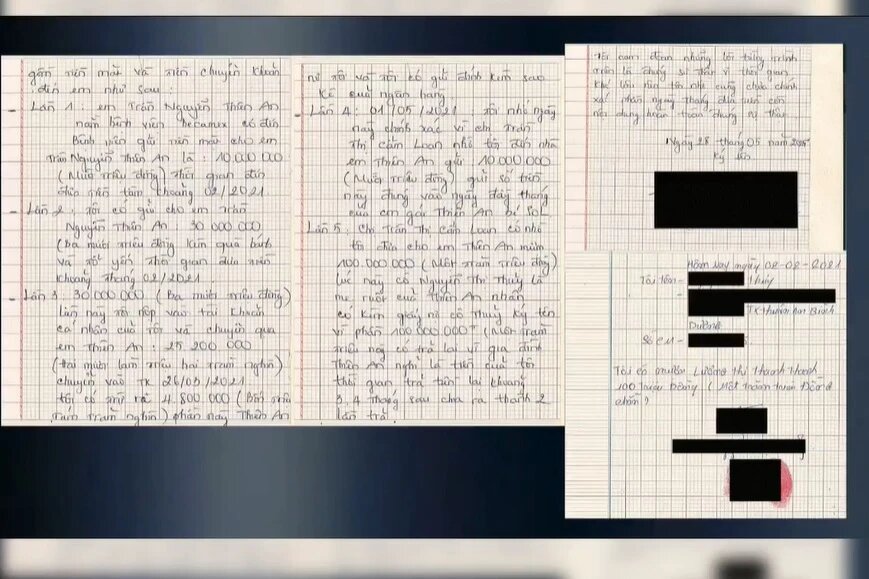 gồm tiền mặt và tiền chuyển khoản
đến em như sau:
- Lần 1: em Trần Nguyễn Thiên An
nằm bệnh viện becamex có đến
Bệnh viện gửi tiền mặt cho em
Trần Nguyễn Thiên An là: 10.000.000
(Mười triệu đồng) thời gian
đưa tiền tầm khoảng 02/2021
- Lần 2: Tôi có gửi cho em Trần
Nguyễn Thiên An: 30.000.000
(Ba mươi triệu đồng kèm quà bánh
và tổ yến thời gian đưa tiền
khoảng tháng 02/2021
- Lần 3: 30.000.000 (Ba mươi triệu đồng)
lần này tôi nộp vào tài khoản
cá nhân của tôi và chuyển qua
em Thiên An: 25.200.000
(Hai mươi lăm triệu hai trăm nghìn)
chuyển vào TK 26/03/2021
tôi có nợ là 4.800.000 (Bốn triệu
tám trăm nghìn) phần này Thiên An
nợ tôi và tôi có gửi đính kèm sao
kê của ngân hàng.
- Lần 4: 01/05/2021 tôi nhớ ngày
này chính xác vì chị Trần
Thị Cẩm Loan nhờ tôi đến nhà
em Thiên An gửi 10.000.000
(Mười triệu đồng) gửi số tiền
này đúng vào ngày đầy tháng
của em gái Thiên An bé SOL.
Lần 5: Chị Trần Thị Cẩm Loan có nhờ
tôi đưa cho em Thiên An mượn
100.000.000 (Một trăm triệu đồng)
lúc này có Nguyễn Thị Thủy là
mẹ ruột của Thiên An nhận
có kèm giấy nợ cô Thủy ký tên
vì phần 100.000.000đ (Một trăm
triệu này có trả lại vì gia đình
Thiên An nghĩ là tiền của tôi
thời gian trả tiền lại khoảng
3.4 tháng sau chia ra thành 2
lần trả.
Tôi cam đoan những lời tường trình
trên là đúng sự thật vì thời gian
khá lâu nên tôi nhớ cũng chưa chính
xác phần ngày tháng đưa tiền còn
nội dung hoàn toàn đúng sự thật.
Ngày 28 tháng 05 năm 2025
Ký tên
Hôm nay ngày 08-08-2021
Tôi tên: Thủy
Dương
Số CM:
Tôi có mượn Lường Thị Thanh Thanh
100 triệu Đồng (Một trăm triệu Đồng
chẵn)